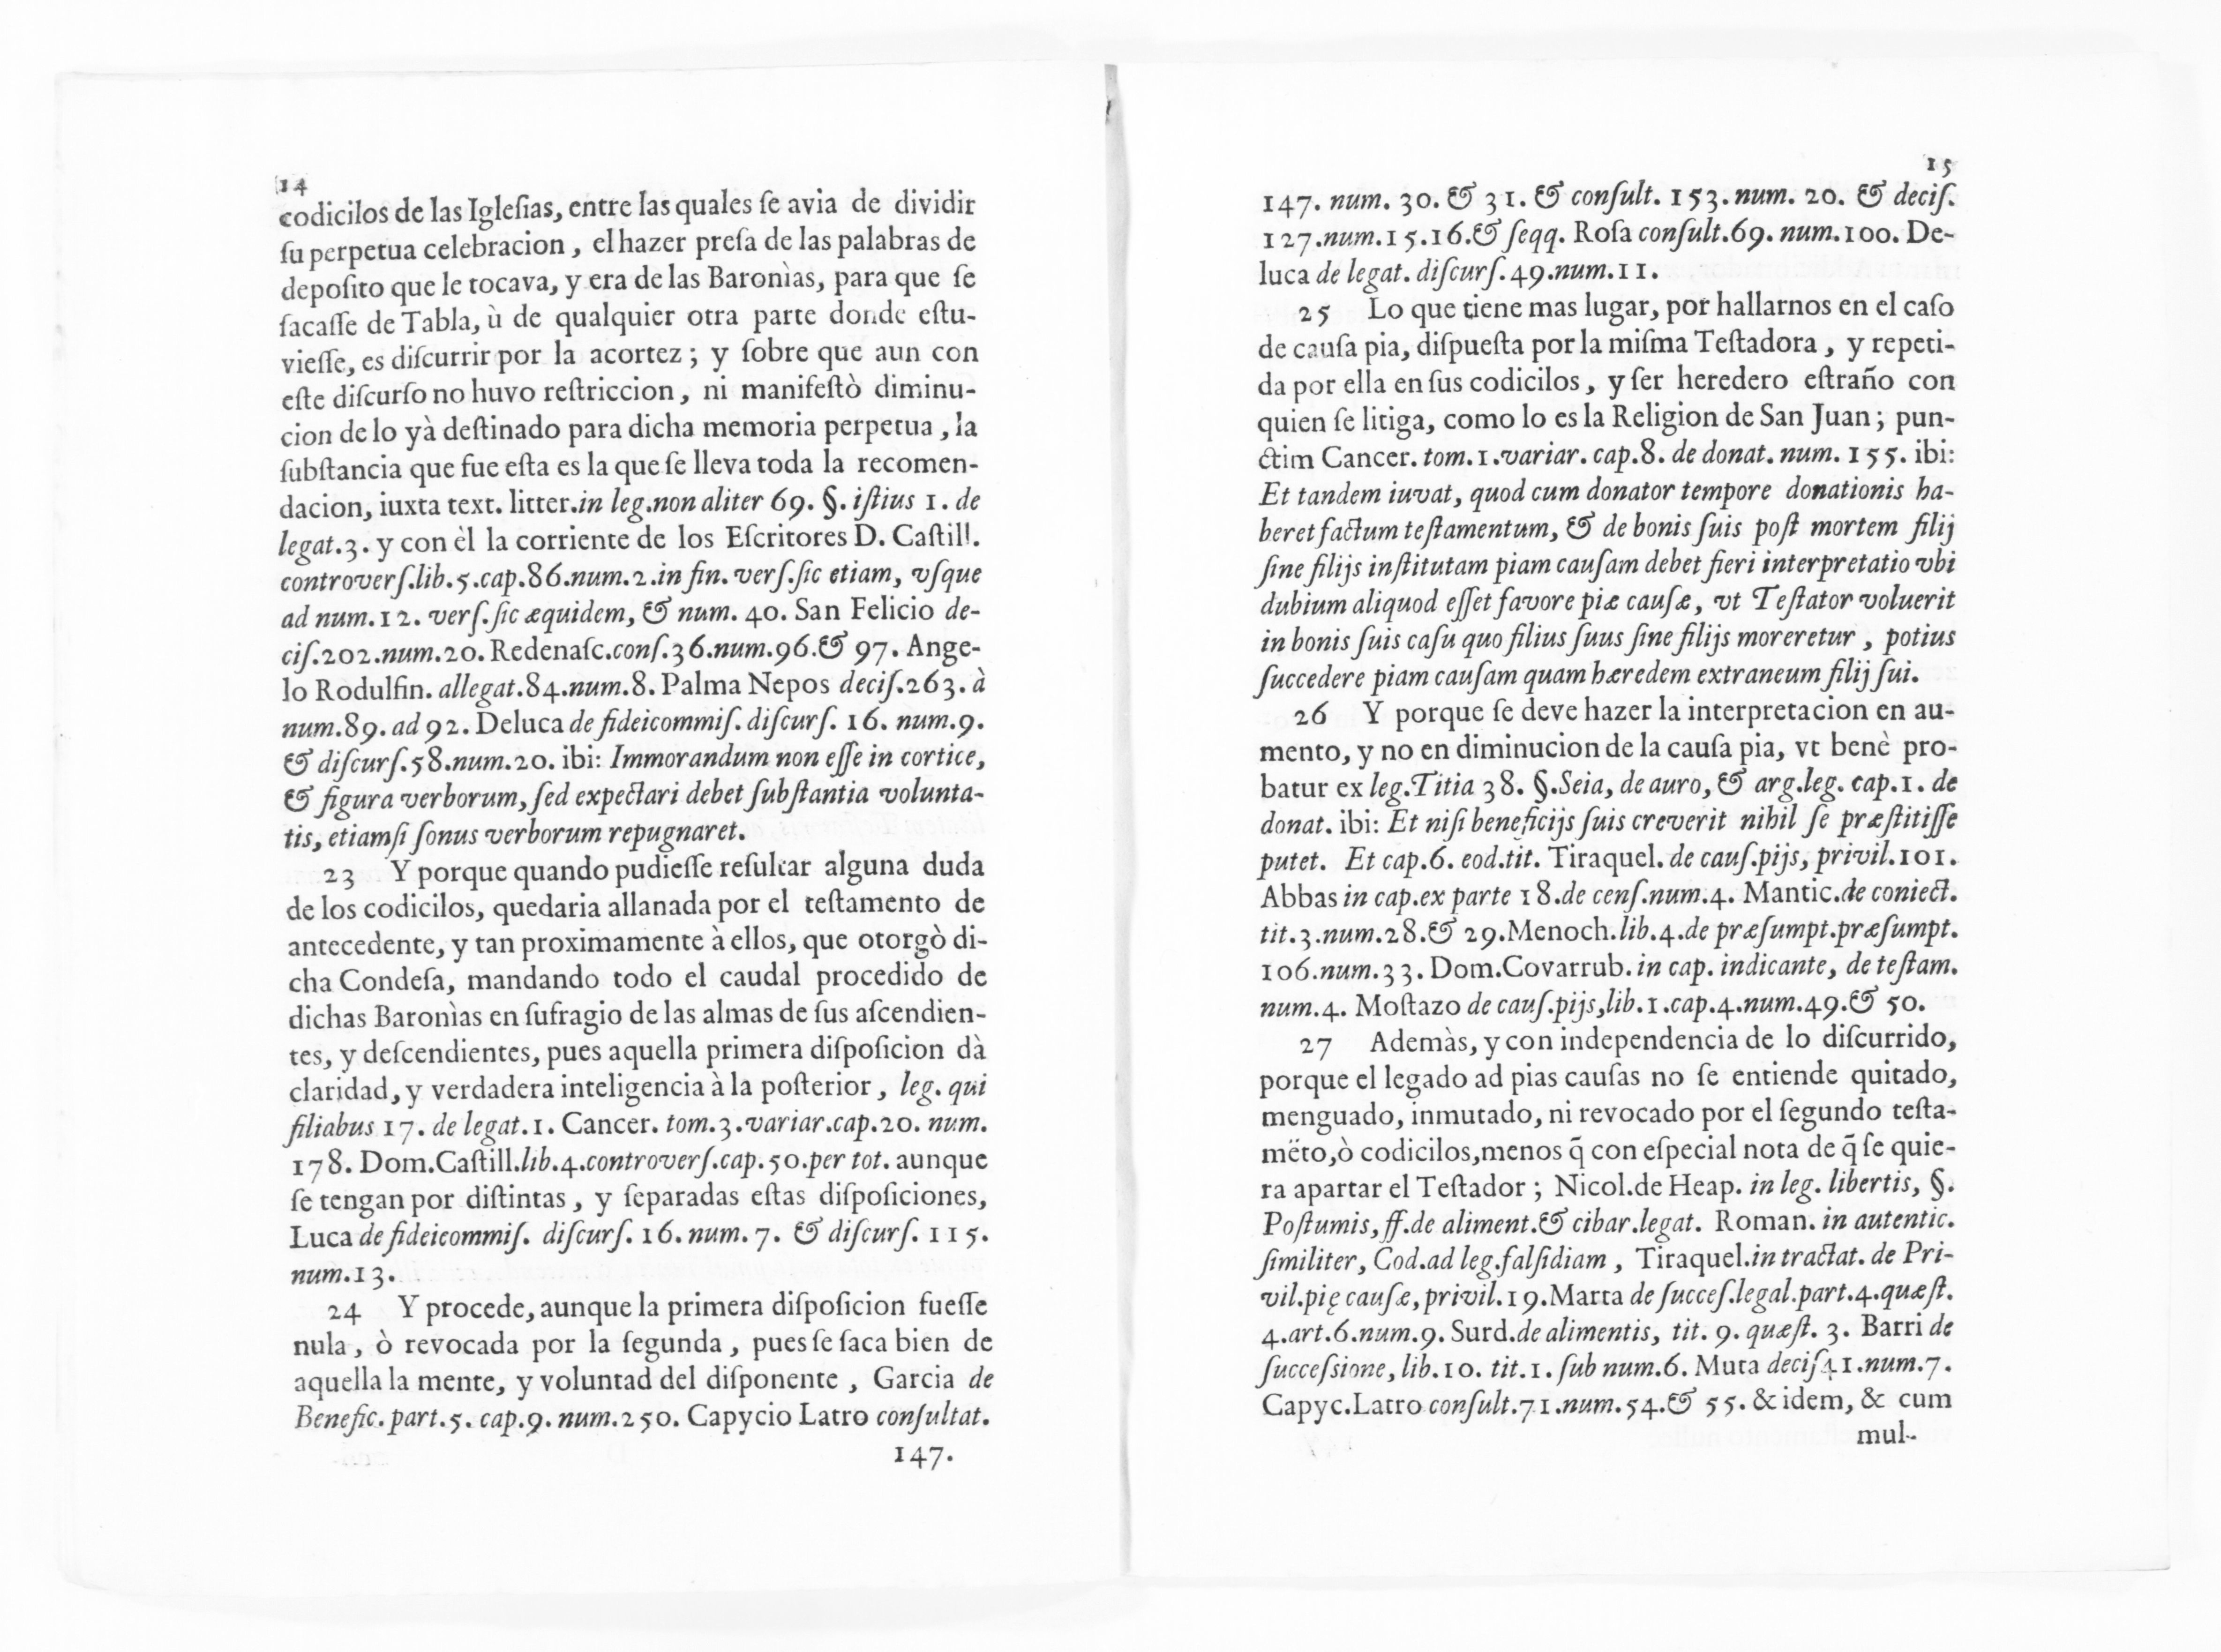 14
codicilos de las Igleſias, entre las quales ſe avia de dividir
ſu perpetua celebracion, el hazer preſa de las palabras de
depoſito que le tocava, y era de las Baronìas, para que ſe
ſacaſſe de Tabla, ù de qualquier otra parte donde eſtu-
vieſſe, es diſcurrir por la acortez; y ſobre que aun con
eſte diſcurſo no huvo reſtriccion, ni manifeſtò diminu-
cion de lo yà deſtinado para dicha memoria perpetua, la
ſubſtancia que fue eſta es la que ſe lleva toda la recomen-
dacion, iuxta text. litter.in leg.non aliter 69. §. iſtius 1. de
legat.3. y con èl la corriente de los Eſcritores D. Caſtill.
controverſ.lib.5.cap.86.num.2.in fin. verſ.ſic etiam, vſque
ad num.12. verſ.ſic æquidem, & num. 40. San Felicio de-
ciſ.202.num.20. Redenaſc.conſ.36.num.96.& 97. Ange-
lo Rodulfin. allegat.84.num.8. Palma Nepos deciſ.263. à
num.89. ad 92. Deluca de fideicommiſ. diſcurſ. 16. num.9.
& diſcurſ.58.num.20. ibi: Immorandum non eſſe in cortice,
& figura verborum, ſed expectari debet ſubſtantia volunta-
tis, etiamſi ſonus verborum repugnaret.
23 Y porque quando pudieſſe reſultar alguna duda
de los codicilos, quedaria allanada por el teſtamento de
antecedente, y tan proximamente à ellos, que otorgò di-
cha Condeſa, mandando todo el caudal procedido de
dichas Baronìas en ſufragio de las almas de ſus aſcendien-
tes, y deſcendientes, pues aquella primera diſpoſicion dà
claridad, y verdadera inteligencia à la poſterior, leg. qui
filiabus 17. de legat.1. Cancer. tom.3.variar.cap.20. num.
178. Dom.Caſtill.lib.4.controverſ.cap.50.per tot. aunque
ſe tengan por diſtintas, y ſeparadas eſtas diſpoſiciones,
Luca de fideicommiſ. diſcurſ. 16. num. 7. & diſcurſ. 115.
num.13.
24 Y procede, aunque la primera diſpoſicion fueſſe
nula, ò revocada por la ſegunda, pues ſe ſaca bien de
aquella la mente, y voluntad del diſponente, Garcia de
Benefic. part.5. cap.9. num.250. Capycio Latro conſultat.
147.
15
147. num. 30. & 31. & conſult. 153. num. 20. & deciſ.
127.num.15.16.& ſeqq. Roſa conſult.69. num.100. De-
luca de legat. diſcurſ. 49.num.11.
25 Lo que tiene mas lugar, por hallarnos en el caſo
de cauſa pia, diſpueſta por la miſma Teſtadora, y repeti-
da por ella en ſus codicilos, y ſer heredero eſtraño con
quien ſe litiga, como lo es la Religion de San Juan; pun-
ctim Cancer. tom.1.variar. cap.8. de donat. num. 155. ibi:
Et tandem iuvat, quod cum donator tempore donationis ha-
beret factum teſtamentum, & de bonis ſuis poſt mortem filij
ſine filijs inſtitutam piam cauſam debet fieri interpretatio vbi
dubium aliquod eſſet favore piæ cauſæ, vt Teſtator voluerit
in bonis ſuis caſu quo filius ſuus ſine filijs moreretur, potius
ſuccedere piam cauſam quam hæredem extraneum filij ſui.
26 Y porque ſe deve hazer la interpretacion en au-
mento, y no en diminucion de la cauſa pia, vt benè pro-
batur ex leg.Titia 38. §.Seia, de auro, & arg.leg. cap.1. de
donat. ibi: Et niſi beneficijs ſuis creverit nihil ſe præſtitiſſe
putet. Et cap.6. eod.tit. Tiraquel. de cauſ.pijs, privil.101.
Abbas in cap.ex parte 18.de cenſ.num.4. Mantic.de coniect.
tit.3.num.28.& 29.Menoch.lib.4.de præſumpt.præſumpt.
106.num.33. Dom.Covarrub.in cap. indicante, de teſtam.
num.4. Moſtazo de cauſ.pijs,lib.1.cap.4.num.49.& 50.
27 Ademàs, y con independencia de lo diſcurrido,
porque el legado ad pias cauſas no ſe entiende quitado,
menguado, inmutado, ni revocado por el ſegundo teſta-
mēto,ò codicilos,menos q̃ con eſpecial nota de q̃ ſe quie-
ra apartar el Teſtador; Nicol.de Heap. in leg. libertis, §.
Poſtumis, ff.de aliment.& cibar.legat. Roman. in autentic.
ſimiliter, Cod.ad leg.falſidiam, Tiraquel.in tractat. de Pri-
vil.pię cauſæ, privil.19.Marta de ſucceſ.legal.part.4.quæſt.
4.art.6.num.9. Surd.de alimentis, tit. 9. quæſt. 3. Barri de
ſucceſsione, lib.10. tit.1. ſub num.6. Muta deciſ41.num.7.
Capyc.Latro conſult.71.num.54.& 55. & idem, & cum
mul-